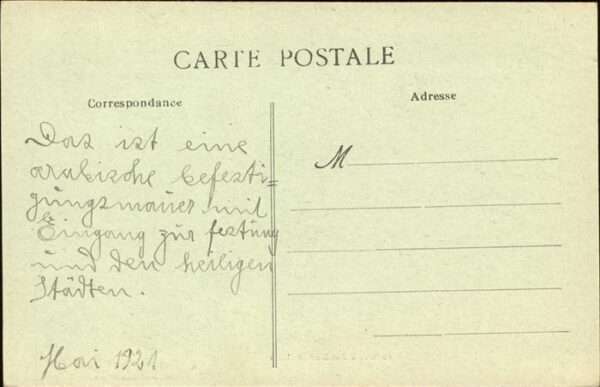 CARTE POSTALE
Correspondance
Adresse
Das ist eine
arabische befesti=
gungsmauer mit
Eingang zur festung
und den heiligen
Städten.
Mai 1921
M